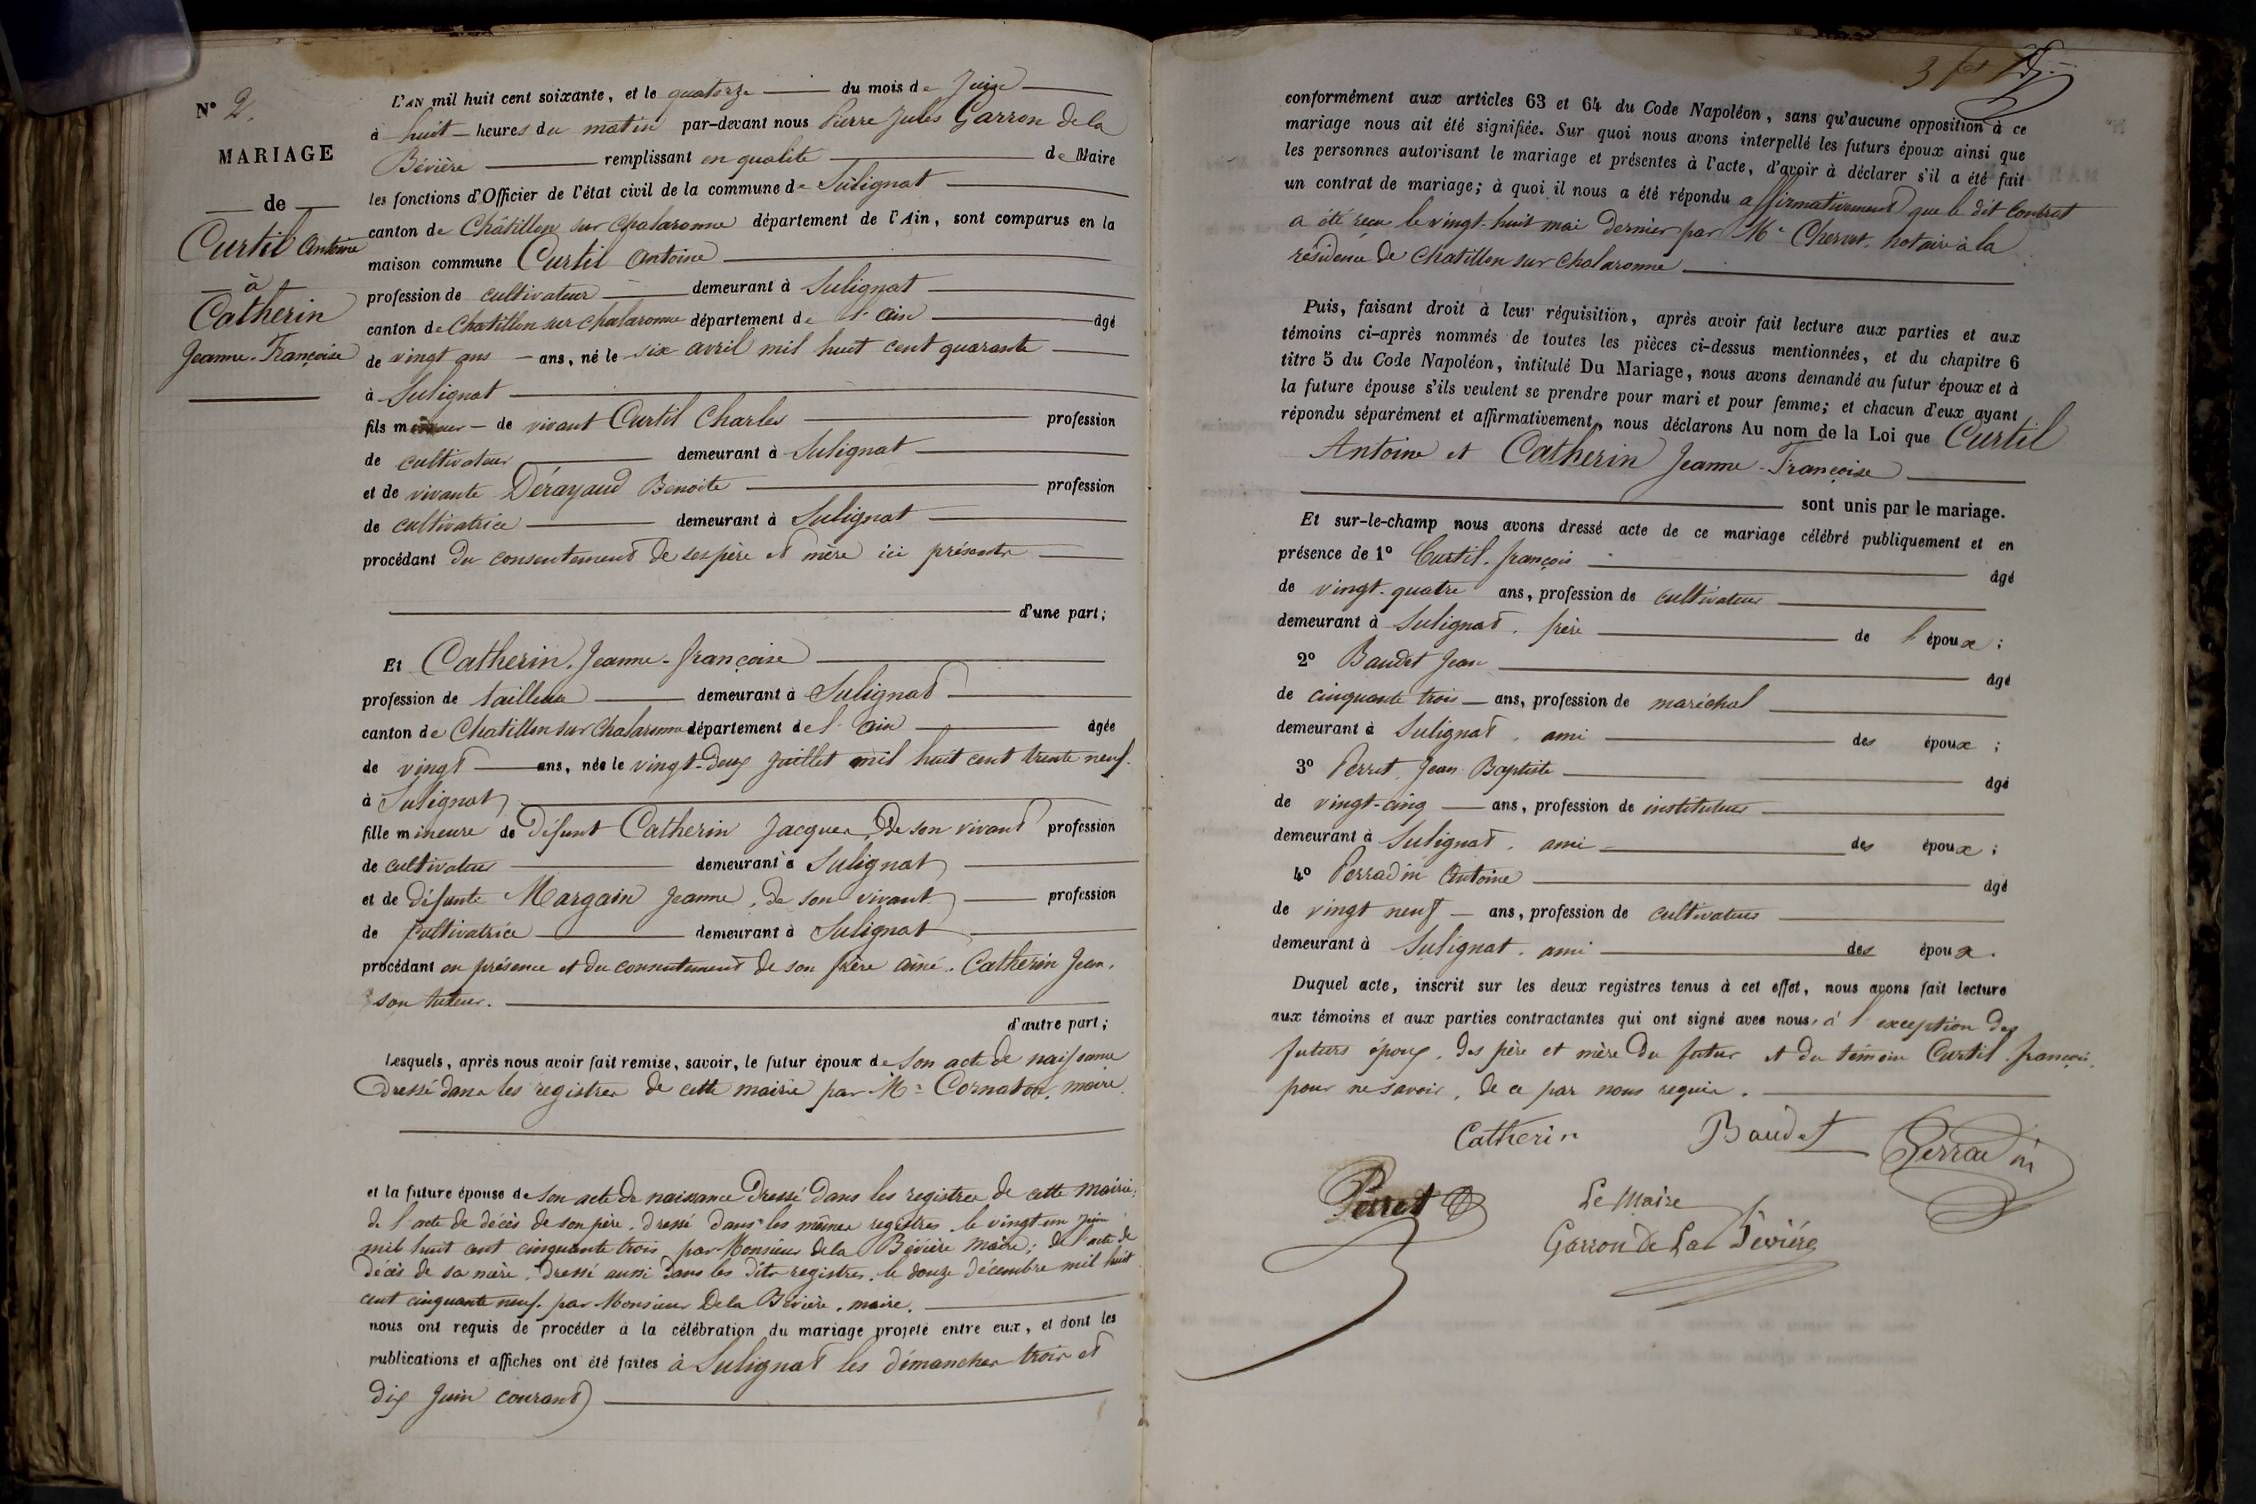 N° 2.
MARIAGE
de
Curtil Antoine
à
Catherin
Jeanne-Françoise
L'AN mil huit cent soixante, et le quatorze du mois de Juin
à huit heures du matin par-devant nous Pierre Jules Garron de la
Bévière remplissant en qualité de Maire
les fonctions d'Officier de l'état civil de la commune de Sulignat
canton de Châtillon sur Chalaronne département de l'Ain, sont comparus en la
maison commune Curtil Antoine
profession de cultivateur demeurant à Sulignat
canton de Chatillon sur Chalaronne département de l'ain âgé
de vingt ans ans, né le six avril mil huit cent quarante
à Sulignat
fils mineur de vivant Curtil Charles profession
de cultivateur demeurant à Sulignat
et de vivante Dérayaud Benoite profession
de cultivatrice demeurant à Sulignat
procédant du consentement de ses père et mère ici présents
d'une part;
Et Catherin, Jeanne-françoise
profession de tailleuse demeurant à Sulignat
canton de Chatillon sur Chalaronne département de l'ain âgée
de vingt ans, née le vingt-deux Juillet mil huit cent trente neuf.
à Sulignat
fille mineure de défunt Catherin Jacques, de son vivant profession
de cultivateur demeurant à Sulignat
et de défunte Margain Jeanne, de son vivant profession
de cultivatrice demeurant à Sulignat
procédant en présence et du consentement de son frère ainé, Catherin Jean,
son tuteur.
d'autre part;
Lesquels, après nous avoir fait remise, savoir, le futur époux de son acte de naissance
dressé dans les registres de cette mairie par Mr Cornaton, maire.
et la future épouse de son acte de naissance dressé dans les registres de cette mairie;
de l'acte de décès de son père, dressé dans les mêmes registres, le vingt-un juin
mil huit cent cinquante trois par Monsieur de la Bévière maire; de l'acte de
décès de sa mère, dressé aussi dans les dits registres, le douze décembre mil huit
cent cinquante neuf, par Monsieur De la Bévière, maire.
nous ont requis de procéder à la célébration du mariage projeté entre eux, et dont les
publications et affiches ont été faites à Sulignat les dimanches trois et
dix Juin courant
3
conformément aux articles 63 et 64 du Code Napoléon, sans qu'aucune opposition à ce
mariage nous ait été signifiée. Sur quoi nous avons interpellé les futurs époux ainsi que
les personnes autorisant le mariage et présentes à l'acte, d'avoir à déclarer s'il a été fait
un contrat de mariage; à quoi il nous a été répondu affirmativement que le dit Contrat
a été reçu le vingt-huit mai dernier par Me Chervet, notaire à la
résidence de Chatillon sur Chalaronne
Puis, faisant droit à leur réquisition, après avoir fait lecture aux parties et aux
témoins ci-après nommés de toutes les pièces ci-dessus mentionnées, et du chapitre 6
titre 5 du Code Napoléon, intitulé Du Mariage, nous avons demandé au futur époux et à
la future épouse s'ils veulent se prendre pour mari et pour femme; et chacun d'eux ayant
répondu séparément et affirmativement, nous déclarons Au nom de la Loi que Curtil
Antoine et Catherin Jeanne-Françoise
sont unis par le mariage.
Et sur-le-champ nous avons dressé acte de ce mariage célébré publiquement et en
présence de 1° Curtil, françois âgé
de vingt-quatre ans, profession de cultivateur
demeurant à Sulignat, frère de l'époux;
2° Baudet Jean âgé
de cinquante trois ans, profession de maréchal
demeurant à Sulignat, ami des époux;
3° Perret, Jean Baptiste âgé
de vingt-cinq ans, profession de instituteur
demeurant à Sulignat, ami des époux;
4° Perradin Antoine âgé
de vingt neuf ans, profession de cultivateur
demeurant à Sulignat, ami des époux.
Duquel acte, inscrit sur les deux registres tenus à cet effet, nous avons fait lecture
aux témoins et aux parties contractantes qui ont signé avec nous, à l'exception des
futurs époux, des père et mère du futur et du témoin Curtil françois,
pour ne savoir, de ce par nous requis.
Catherin Baudet Perradin
Perret Le Maire
Garron de La Bévière